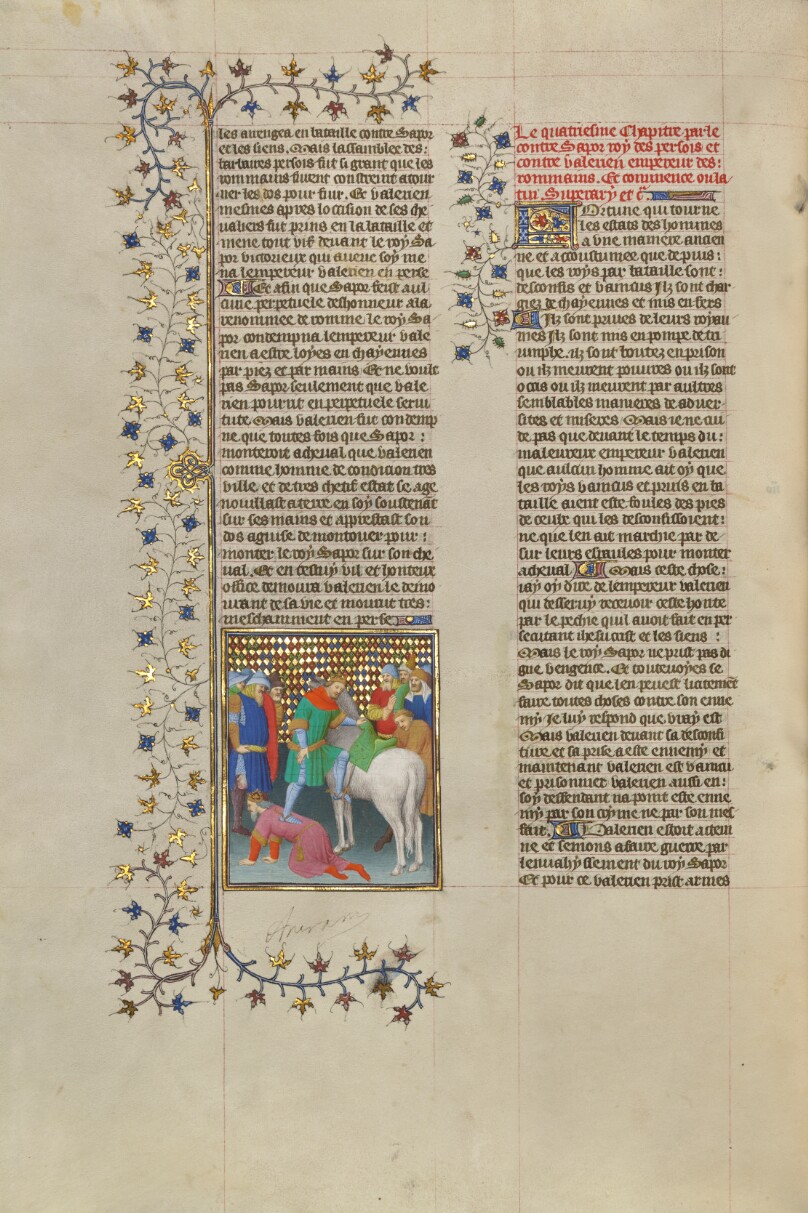 les auengea en bataille contre Sapor
et les siens. Mais lassamblee des:
barbaires persois fut si grant que les
rommains furent constreint atour
ner les dos pour fuir. Et valerien
mesmes apres loccision de ses che
valiers fut prins en la bataille et
mene tout vif deuant le roy Sa
por victorieux qui auecc soy me
na lempereur valerien en perse
Et afin que Sapor feist aul
cune perpetuele deshonneur ala
renommee de romme le roy Sa
por contempna lempereur vale
rien a estre loyes en chayennes
par piez et par mains Et ne voult
pas Sapor seulement que vale
rien pourrit en perpetuele serui
tute. Mais valerien fut condemp
ne que toutes fois que Sapor:
monteroit acheual que valerien
comme homme de condicion tres
ville et de tres chetif estat se age
noullast a terre en soy soustenat
sur ses mains et apprestast son
dos aguise de montouer pour:
monter le roy Sapor sur son che
ual. Et en cestuy vil et honteux
office demoura valerien le demo
urant de sa vie et mourut tres:
meschamment en perse
Le quatriesme Chapitre parle
contre Sapor roy des persois et
contre valerien empereur des:
rommains. Et commence ou la
tin. Superary et c.
Fortune qui tourne
les estats des hommes
a vne maniere ancien
ne et acoustumee que depuis:
que les roys par bataille sont:
desconfis et vaincus Ilz sont char
giez de chayennes et mis en fers
Ilz sont priues de leurs royau
mes Ilz sont mis en pompe de tri
umphe. ilz sont boutez en prison
ou ilz meurent pouures ou ilz sont
occis ou ilz meurent par aultres
semblables manieres de aduer
sites et miseres Mais ie ne cui
de pas que deuant le temps du:
maleureux empereur valerien
que aulcun homme ait oy que
les roys vaincus et prins en ba
taille aient este foules des pies
de ceulx qui les desconfissoient:
ne que len ait marchie par de
sur leurs espaules pour monter
acheual Mais ceste chose:
iay oy dire de lempereur valerien
qui desseruy receuoir ceste honte
par le pechie quil auoit fait en per
secutant ihesucrist et les siens:
Mais le roy Sapor ne prist pas di
gne vengence. Et toutesuoyes se
Sapor dit que len peust licitement
faire toutes choses contre son enne
my Ie luy respond que vray est
Mais valerien deuant sa desconfi
ture et sa prise a este ennemy et
maintenant valerien est vaincu
et prisonnier valerien aussi en:
soy deffendant na point este enne
my par son cryme ne par son mes
fait. Valerien estoit actein
ne et semons a faire guerre par
lenuahyssement du roy Sapor
Et pour ce valerien prist armes